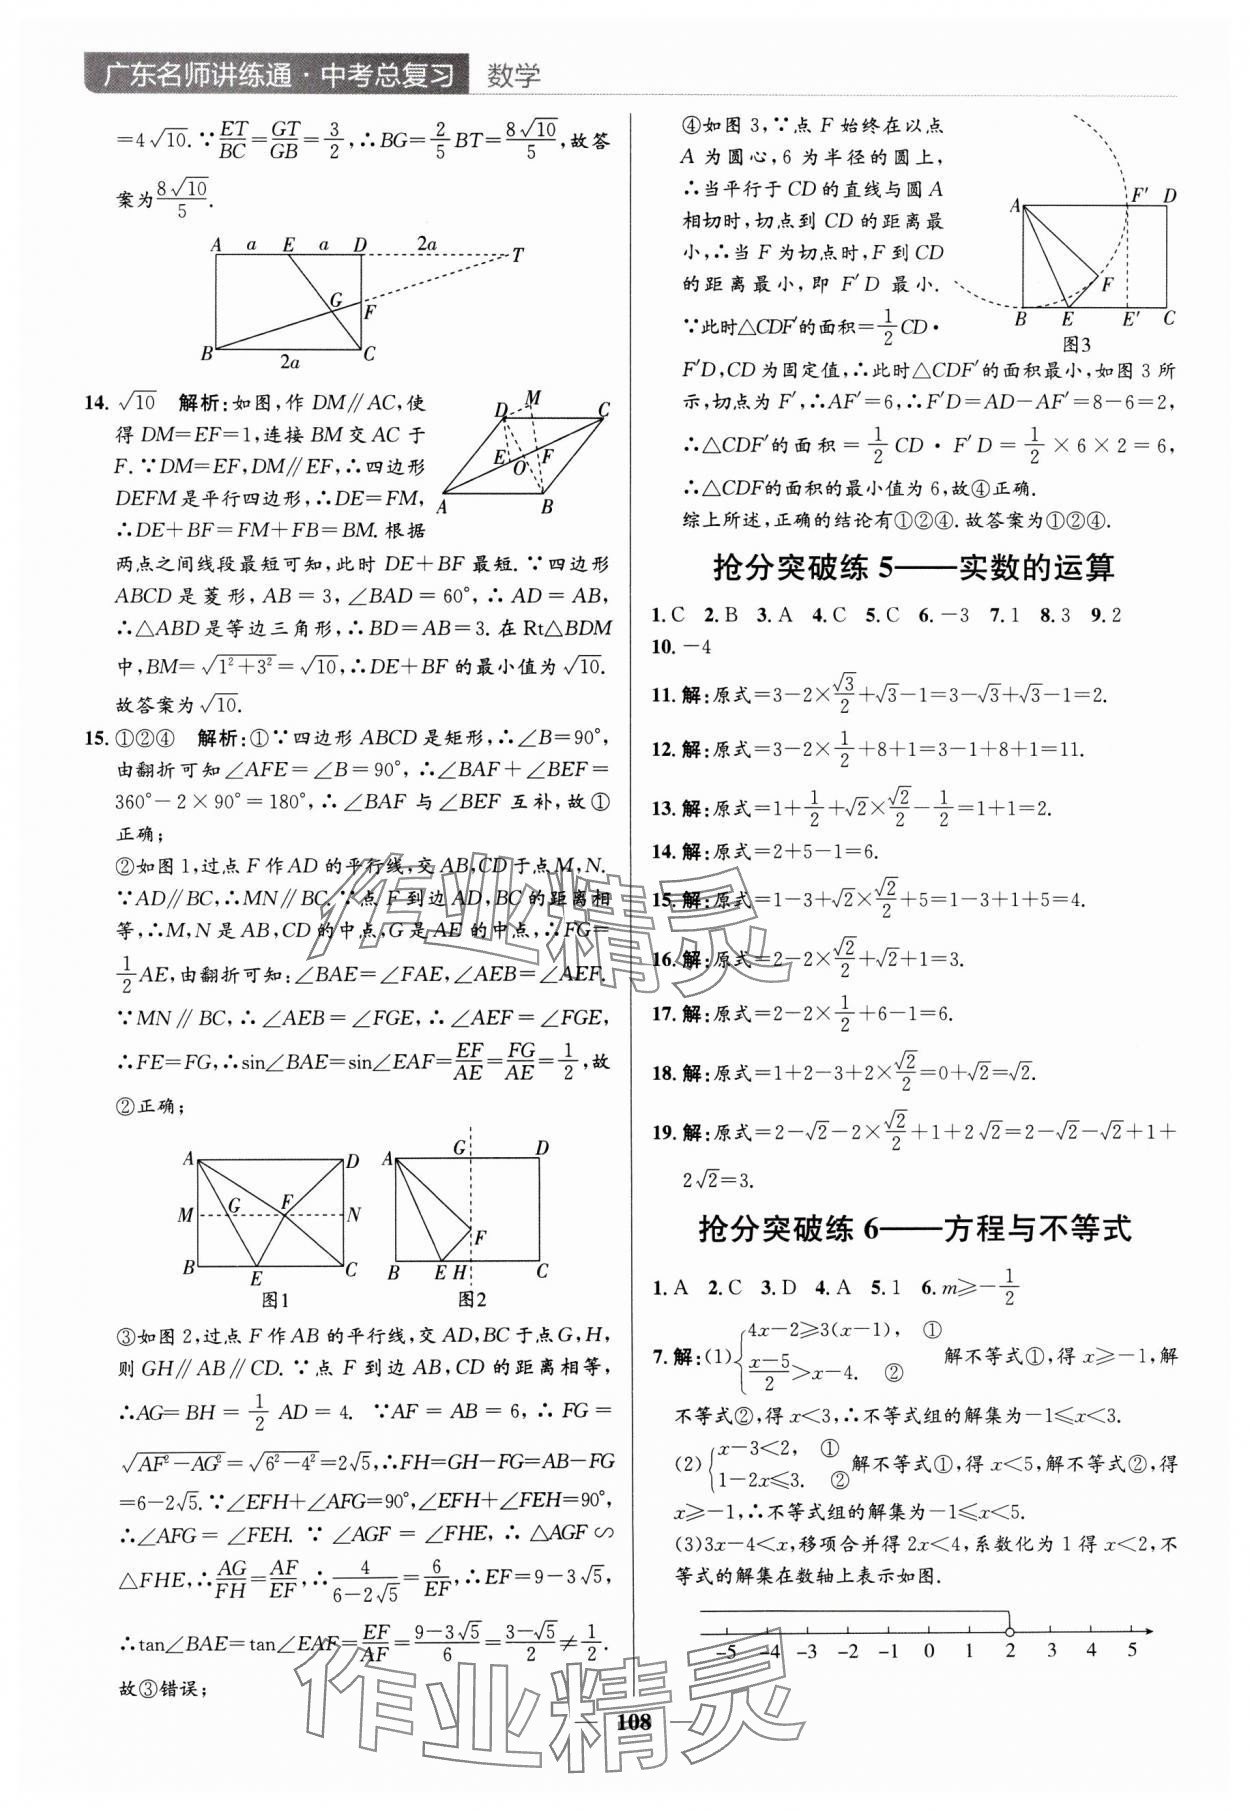 广东名师讲练通·中考总复习 数学
=4√10.∵ET/BC=GT/GB=3/2,∴BG=2/5 BT=8√10/5,故答
案为8√10/5.
A a E a D 2a T
G F
B 2a C
14. √10 解析:如图,作 DM∥AC,使
得 DM=EF=1,连接 BM 交 AC 于
F.∵DM=EF,DM∥EF,∴四边形
DEFM 是平行四边形,∴DE=FM,
∴DE+BF=FM+FB=BM.根据
D M C
E O F
A B
两点之间线段最短可知,此时 DE+BF 最短.∵四边形
ABCD 是菱形,AB=3,∠BAD=60°,∴AD=AB,
∴△ABD 是等边三角形,∴BD=AB=3.在 Rt△BDM
中,BM=√(1²+3²)=√10,∴DE+BF 的最小值为√10.
故答案为√10.
15. ①②④ 解析:①∵四边形 ABCD 是矩形,∴∠B=90°,
由翻折可知∠AFE=∠B=90°,∴∠BAF+∠BEF=
360°-2×90°=180°,∴∠BAF 与∠BEF 互补,故①
正确;
②如图 1,过点 F 作 AD 的平行线,交 AB,CD 于点 M,N.
∵AD∥BC,∴MN∥BC.∵点 F 到边 AD,BC 的距离相
等,∴M,N 是 AB,CD 的中点,G 是 AE 的中点,∴FG=
1/2 AE,由翻折可知:∠BAE=∠FAE,∠AEB=∠AEF.
∵MN∥BC,∴∠AEB=∠FGE,∴∠AEF=∠FGE,
∴FE=FG,∴sin∠BAE=sin∠EAF=EF/AE=FG/AE=1/2,故
②正确;
A D
M G F N
B E C
图1
A G D
F
B E H C
图2
③如图 2,过点 F 作 AB 的平行线,交 AD,BC 于点 G,H,
则 GH∥AB∥CD.∵点 F 到边 AB,CD 的距离相等,
∴AG=BH=1/2 AD=4. ∵AF=AB=6,∴FG=
√(AF²-AG²)=√(6²-4²)=2√5,∴FH=GH-FG=AB-FG
=6-2√5.∵∠EFH+∠AFG=90°,∠EFH+∠FEH=90°,
∴∠AFG=∠FEH.∵∠AGF=∠FHE,∴△AGF∽
△FHE,∴AG/FH=AF/EF,∴4/(6-2√5)=6/EF,∴EF=9-3√5,
∴tan∠BAE=tan∠EAF=EF/AF=(9-3√5)/6=(3-√5)/2≠1/2.
故③错误;
④如图 3,∵点 F 始终在以点
A 为圆心,6 为半径的圆上,
∴当平行于 CD 的直线与圆 A
相切时,切点到 CD 的距离最
小,∴当 F 为切点时,F 到 CD
的距离最小,即 F′D 最小.
∵此时△CDF′的面积=1/2 CD·
A F′ D
F
B E E′ C
图3
F′D,CD 为固定值,∴此时△CDF′的面积最小,如图 3 所
示,切点为 F′,∴AF′=6,∴F′D=AD-AF′=8-6=2,
∴△CDF′的面积=1/2 CD·F′D=1/2×6×2=6,
∴△CDF的面积的最小值为 6,故④正确.
综上所述,正确的结论有①②④.故答案为①②④.
抢分突破练 5——实数的运算
1. C 2. B 3. A 4. C 5. C 6. -3 7. 1 8. 3 9. 2
10. -4
11. 解:原式=3-2×√3/2+√3-1=3-√3+√3-1=2.
12. 解:原式=3-2×1/2+8+1=3-1+8+1=11.
13. 解:原式=1+1/2+√2×√2/2-1/2=1+1=2.
14. 解:原式=2+5-1=6.
15. 解:原式=1-3+√2×√2/2+5=1-3+1+5=4.
16. 解:原式=2-2×√2/2+√2+1=3.
17. 解:原式=2-2×1/2+6-1=6.
18. 解:原式=1+2-3+2×√2/2=0+√2=√2.
19. 解:原式=2-√2-2×√2/2+1+2√2=2-√2-√2+1+
2√2=3.
抢分突破练 6——方程与不等式
1. A 2. C 3. D 4. A 5. 1 6. m≥-1/2
7. 解:(1){4x-2≥3(x-1), ① (x-5)/2>x-4. ② 解不等式①,得 x≥-1,解
不等式②,得 x<3,∴不等式组的解集为-1≤x<3.
(2){x-3<2, ① 1-2x≤3. ② 解不等式①,得 x<5,解不等式②,得
x≥-1,∴不等式组的解集为-1≤x<5.
(3)3x-4<x,移项合并得 2x<4,系数化为 1 得 x<2,不
等式的解集在数轴上表示如图.
-5 -4 -3 -2 -1 0 1 2 3 4 5
108
作业精灵
作业精灵